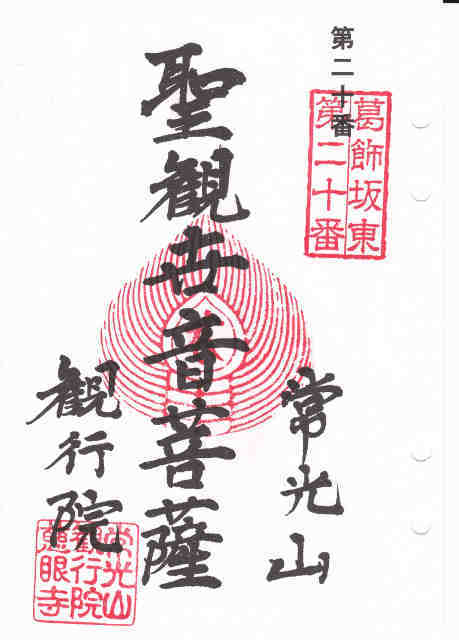 第二十番
葛飾坂東
第二十番
常光山
聖観世音菩薩
観行院
常光山
観行院
慈眼寺